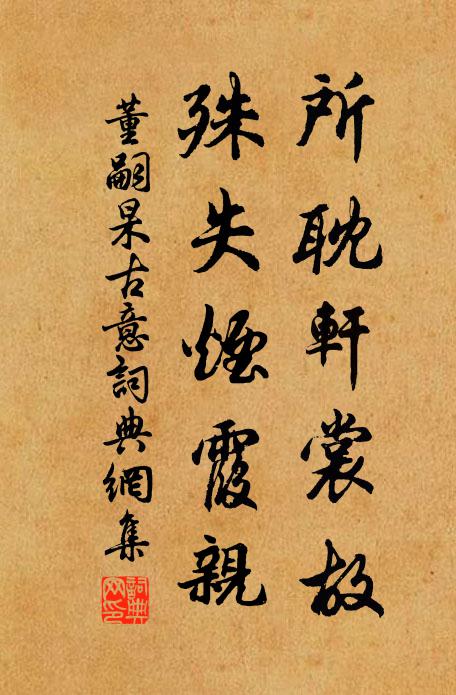 所耽軒裳故
殊失煙霞親
董嗣杲古意詞典網集
詞典網印